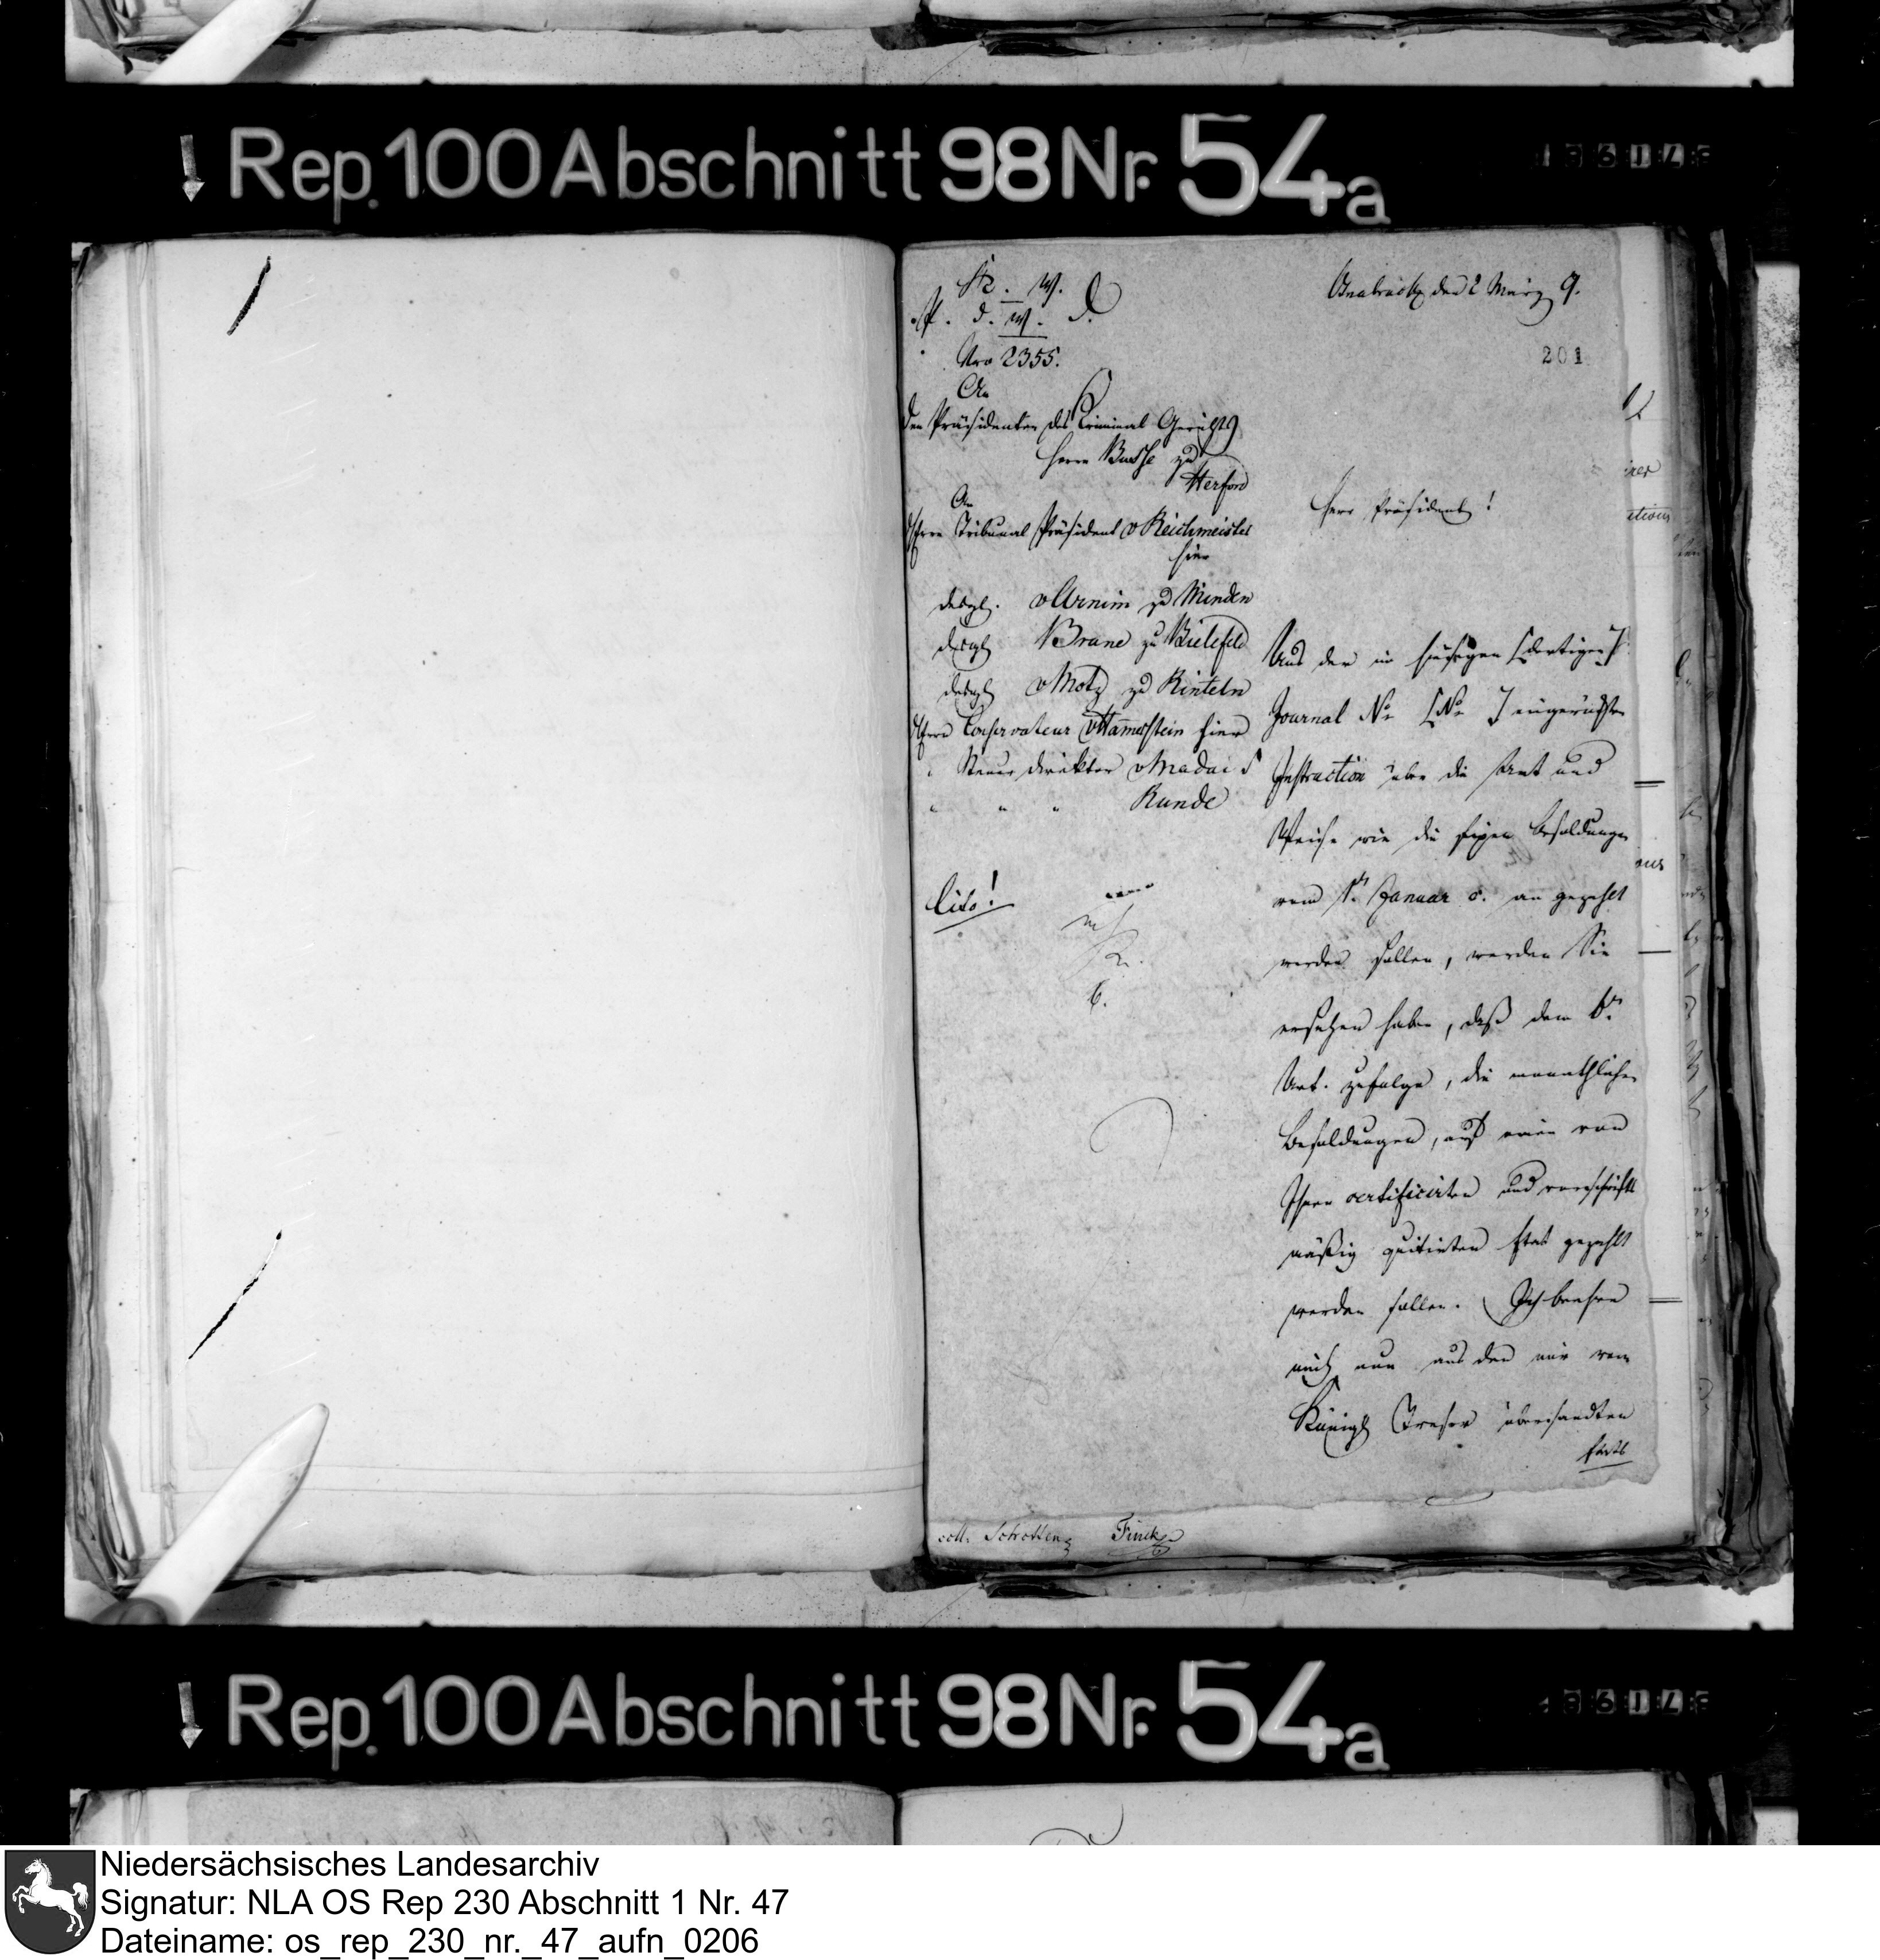 Rep. 100 Abschnitt 98 Nr. 54a
Osnabrück den 2 März 9.
201
Nro 2355.
An
den Präsidenten des Criminal Gerichts
Herrn Busse zu
Herford
An
Herrn Tribunal Präsident v Reichmeister
hier
desgl. v Arnim zu Minden
desgl Brane zu Bielefeld
desgl v Motz zu Rinteln
Herrn Conservateur v Hammerstein hier
" Steuer direktor v Madai
" " " Runde
Cito!
Herr Präsident!
Aus der im hiesigen [dortigen]
Journal No [No ] eingerückten
Instruction über die Art und
Weise wie die fixen Besoldungen
vom 1t Januar c. an gezahlt
werden sollen, werden Sie
ersehen haben, daß dem 6n
Art. zufolge, die monathlichen
Besoldungen, auf einen von
Ihnen certificirten und vorschrifts
mäßig quitirten Etat gezahlt
werden sollen. Ich beehre
mich nun aus den mir vom
Königl Tresor übersandten
coll. Schrotten Finck
Rep. 100 Abschnitt 98 Nr. 54a
Niedersächsisches Landesarchiv
Signatur: NLA OS Rep 230 Abschnitt 1 Nr. 47
Dateiname: os_rep_230_nr._47_aufn_0206